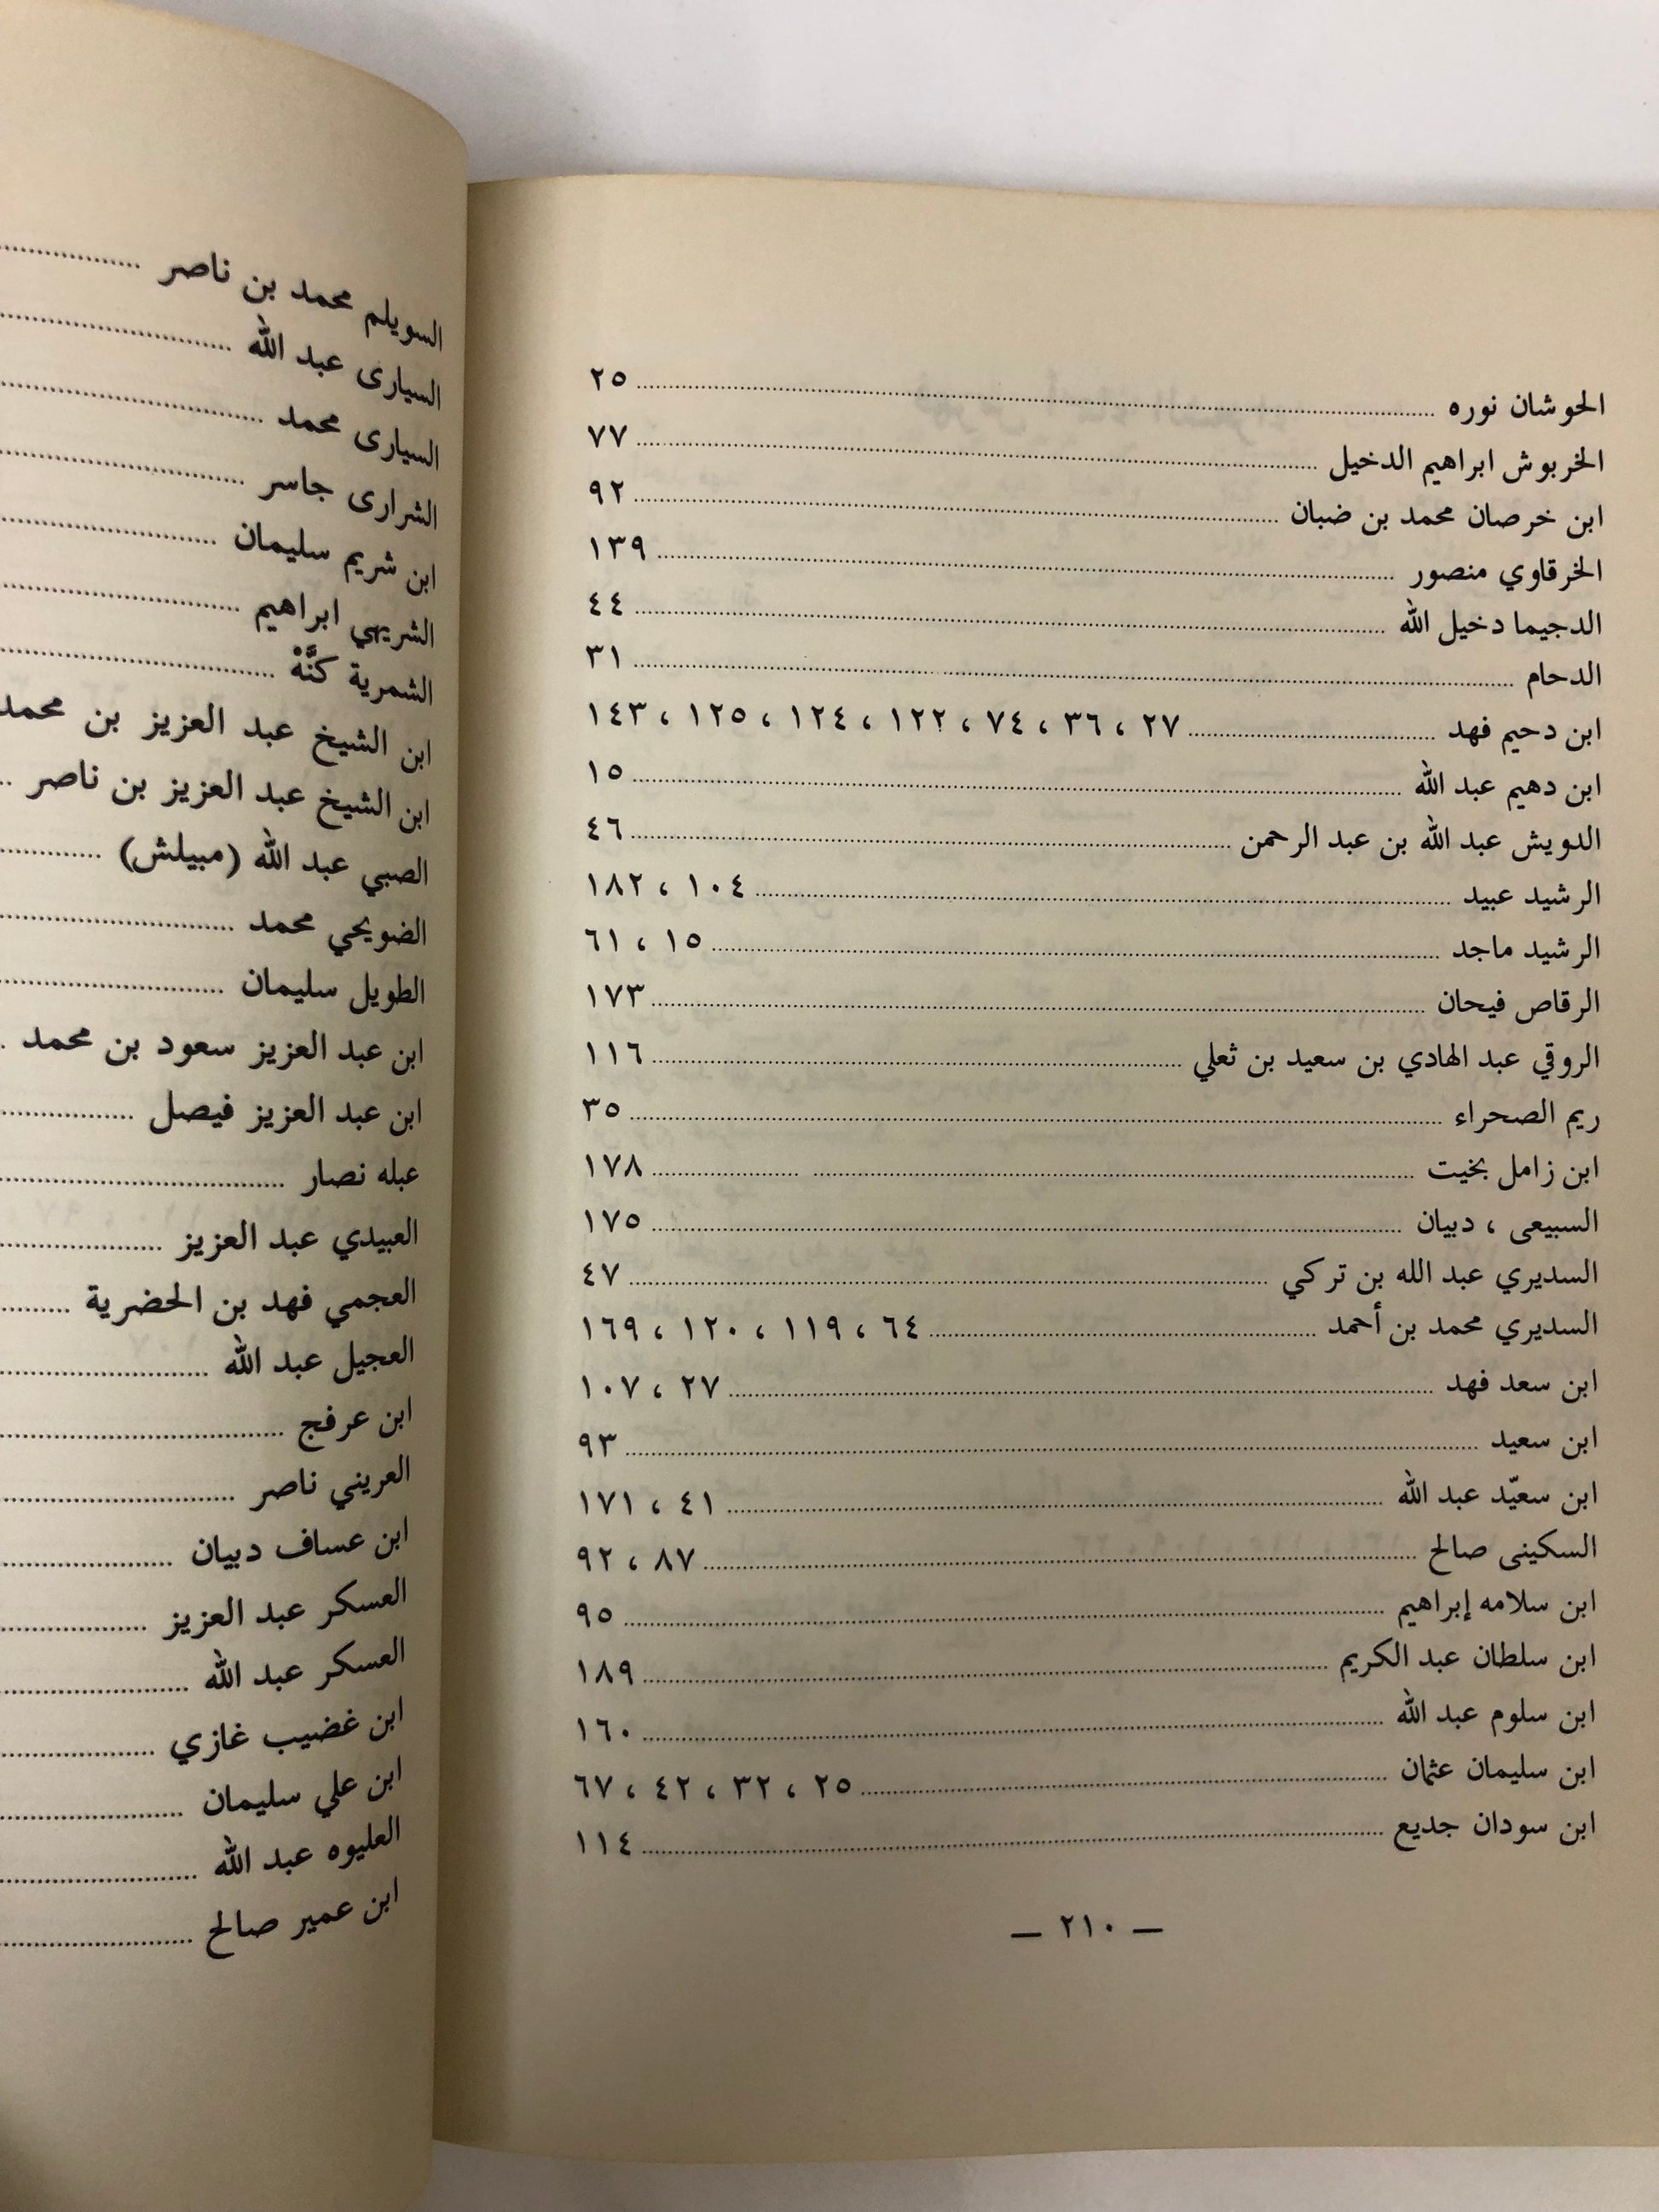 الحوشان نوره ........ ٢٥
الخربوش ابراهيم الدخيل ........ ٧٧
ابن خرصان محمد بن ضبان ........ ٩٢
الخرقاوي منصور ........ ١٣٩
الدجيما دخيل الله ........ ٤٤
الدحام ........ ٣١
ابن دحيم فهد ........ ٢٧ ، ٣٦ ، ٧٤ ، ١٢٢ ، ١٢٤ ، ١٢٥ ، ١٤٣
ابن دهيم عبد الله ........ ١٥
الدويش عبد الله بن عبد الرحمن ........ ٤٦
الرشيد عبيد ........ ١٠٤ ، ١٨٢
الرشيد ماجد ........ ١٥ ، ٦١
الرقاص فيحان ........ ١٧٣
الروقي عبد الهادي بن سعيد بن ثعلي ........ ١١٦
ريم الصحراء ........ ٣٥
ابن زامل بخيت ........ ١٧٨
السبيعى ، دبيان ........ ١٧٥
السديري عبد الله بن تركي ........ ٤٧
السديري محمد بن أحمد ........ ٦٤ ، ١١٩ ، ١٢٠ ، ١٦٩
ابن سعد فهد ........ ٢٧ ، ١٠٧
ابن سعيد ........ ٩٣
ابن سعيّد عبد الله ........ ٤١ ، ١٧١
السكينى صالح ........ ٨٧ ، ٩٢
ابن سلامه إبراهيم ........ ٩٥
ابن سلطان عبد الكريم ........ ١٨٩
ابن سلوم عبد الله ........ ١٦٠
ابن سليمان عثمان ........ ٢٥ ، ٣٢ ، ٤٢ ، ٦٧
ابن سودان جديع ........ ١١٤
— ٢١٠ —
السويلم محمد بن ناصر ........
السيارى عبد الله ........
السيارى محمد ........
الشرارى جاسر ........
ابن شريم سليمان ........
الشريهي ابراهيم ........
الشمرية كنَّهْ ........
ابن الشيخ عبد العزيز بن محمد
ابن الشيخ عبد العزيز بن ناصر ..
الصبي عبد الله (مبيلش) ........
الضويحي محمد ........
الطويل سليمان ........
ابن عبد العزيز سعود بن محمد .
ابن عبد العزيز فيصل ........
عبله نصار ........
العبيدي عبد العزيز ........
العجمي فهد بن الحضرية ........
العجيل عبد الله ........
ابن عرفج ........
العريني ناصر ........
ابن عساف دبيان ........
العسكر عبد العزيز ........
العسكر عبد الله ........
ابن غضيب غازي ........
ابن علي سليمان ........
العليوه عبد الله ........
ابن عمير صالح ........